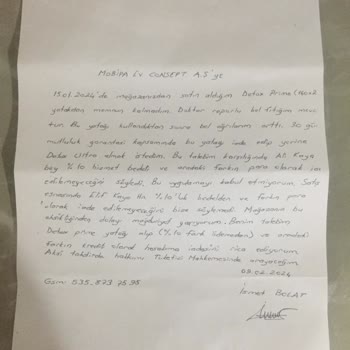 MOBİPA Ev CONSEPT A.Ş'ye
15.01.2024'de mağazanızdan satın aldığım Detox Prime
yataktan memnun kalmadım. Doktor raporlu bel fıtığım mevcuttur.
Bu yatağı kullandıktan sonra bel ağrılarım arttı. 50 gün
mutluluk garantisi kapsamında bu yatağı iade edip yerine
Detox Ultra almak istedim. Bu talebim karşılığında Ali Kaya
bey %10 hizmet bedeli ve aradaki farkın para olarak iade
edilemeyeceğini söyledi. Bu uygulamayı kabul etmiyorum. Satış
esnasında Elif Kaya bu %10'luk bedelden ve farkın para
olarak iade edilemeyeceğini bize söylemedi. Mağazanın bu
eksikliğinden dolayı mağduriyet yaşıyorum. Benim talebim
Detox prime yatağı alıp (%10 farkı ödemeden) ve aradaki
farkın kredi olarak hesabıma iadesini rica ediyorum
Aksi takdirde hakkımı Tüketici Mahkemesinde arayacağım
02.2024
Gsm: 535.873 7595
İsmet BOLAT